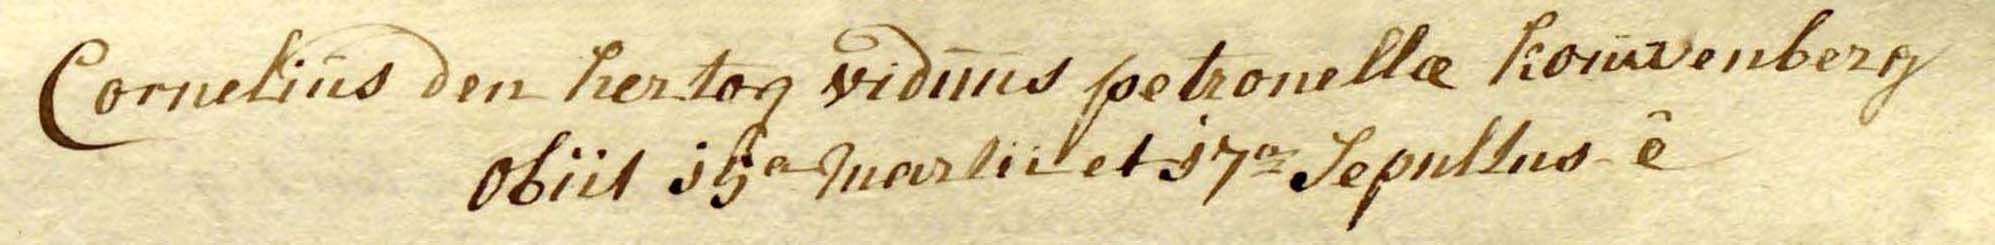 Cornelius den hertog viduus petronellæ kouwenberg
obiit 15a Martii et 17a Sepultus ê